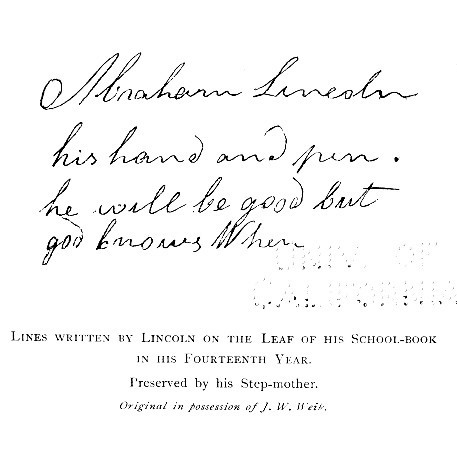 Abraham Lincoln
his hand and pen.
he will be good but
god knows When
UNIV. OF
CALIFORNIA
LINES WRITTEN BY LINCOLN ON THE LEAF OF HIS SCHOOL-BOOK
IN HIS FOURTEENTH YEAR.
Preserved by his Step-mother.
Original in possession of J. W. Weik.